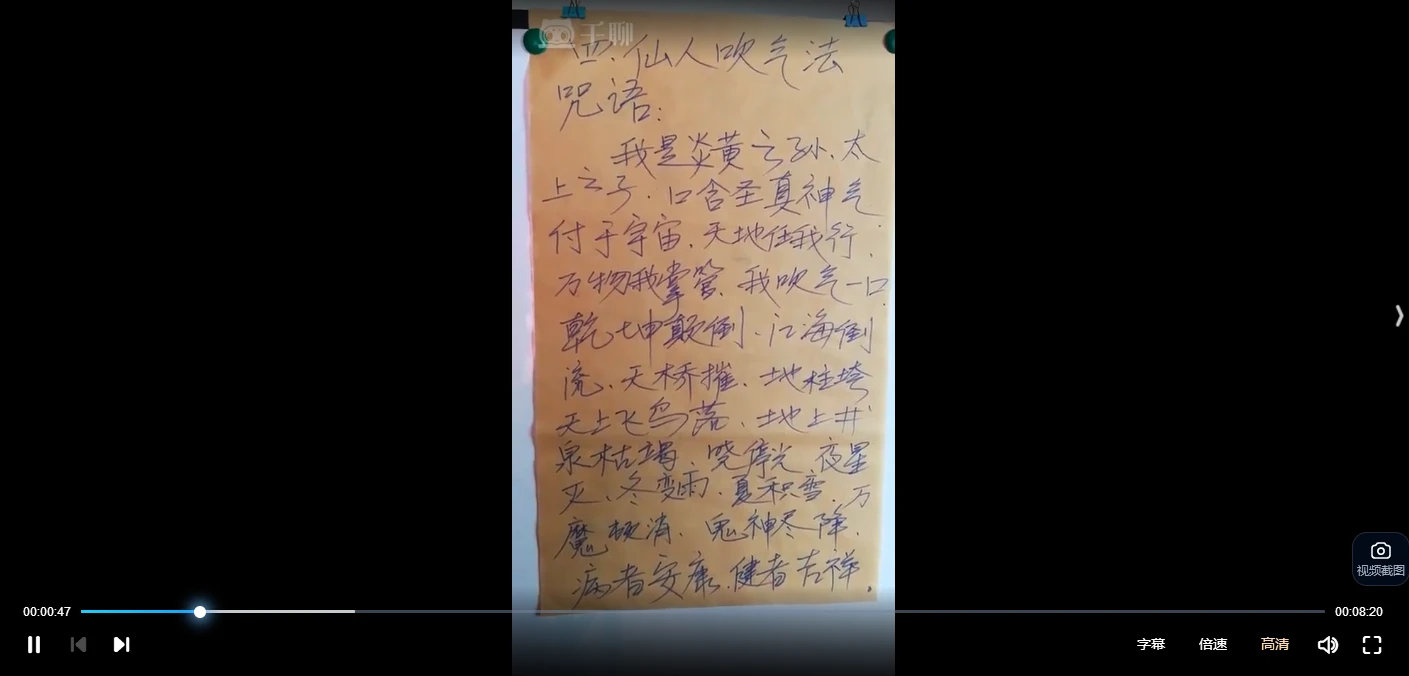 千聊
四.仙人吹气法
咒语:
我是炎黄之孙.太
上之子.口含圣真神气
付于宇宙.天地任我行.
万物我掌管.我吹气一口
乾坤颠倒.江海倒
流.天桥摧.地柱垮
天上飞鸟落.地上井
泉枯竭.晓停光 夜星
灭.冬变雨.夏积雪.万
魔顿消.鬼神尽降.
病者安康.健者吉祥.
视频截图
00:00:47
00:08:20
字幕 倍速 高清